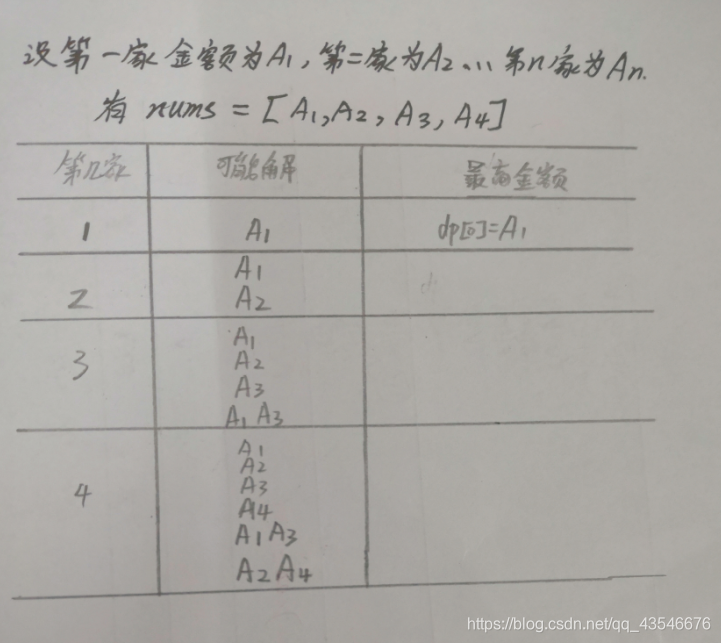 设第一家金额为A1,第二家为A2...第n家为An.
有 nums = [A1,A2,A3,A4]
第几家 可能解 最高金额
1 A1 dp[0]=A1
A1
2 A2
A1
3 A2
A3
A1 A3
A1
A2
A3
4 A4
A1A3
A2A4
https://blog.csdn.net/qq_43546676